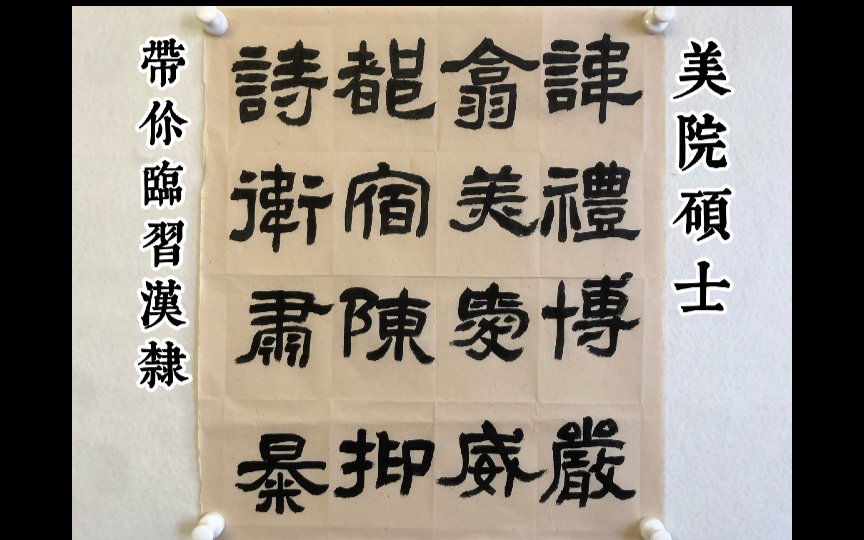 美院碩士
諱禮博嚴
翕美慶威
都宿陳抑
詩衛肅暴
帶伱臨習漢隸